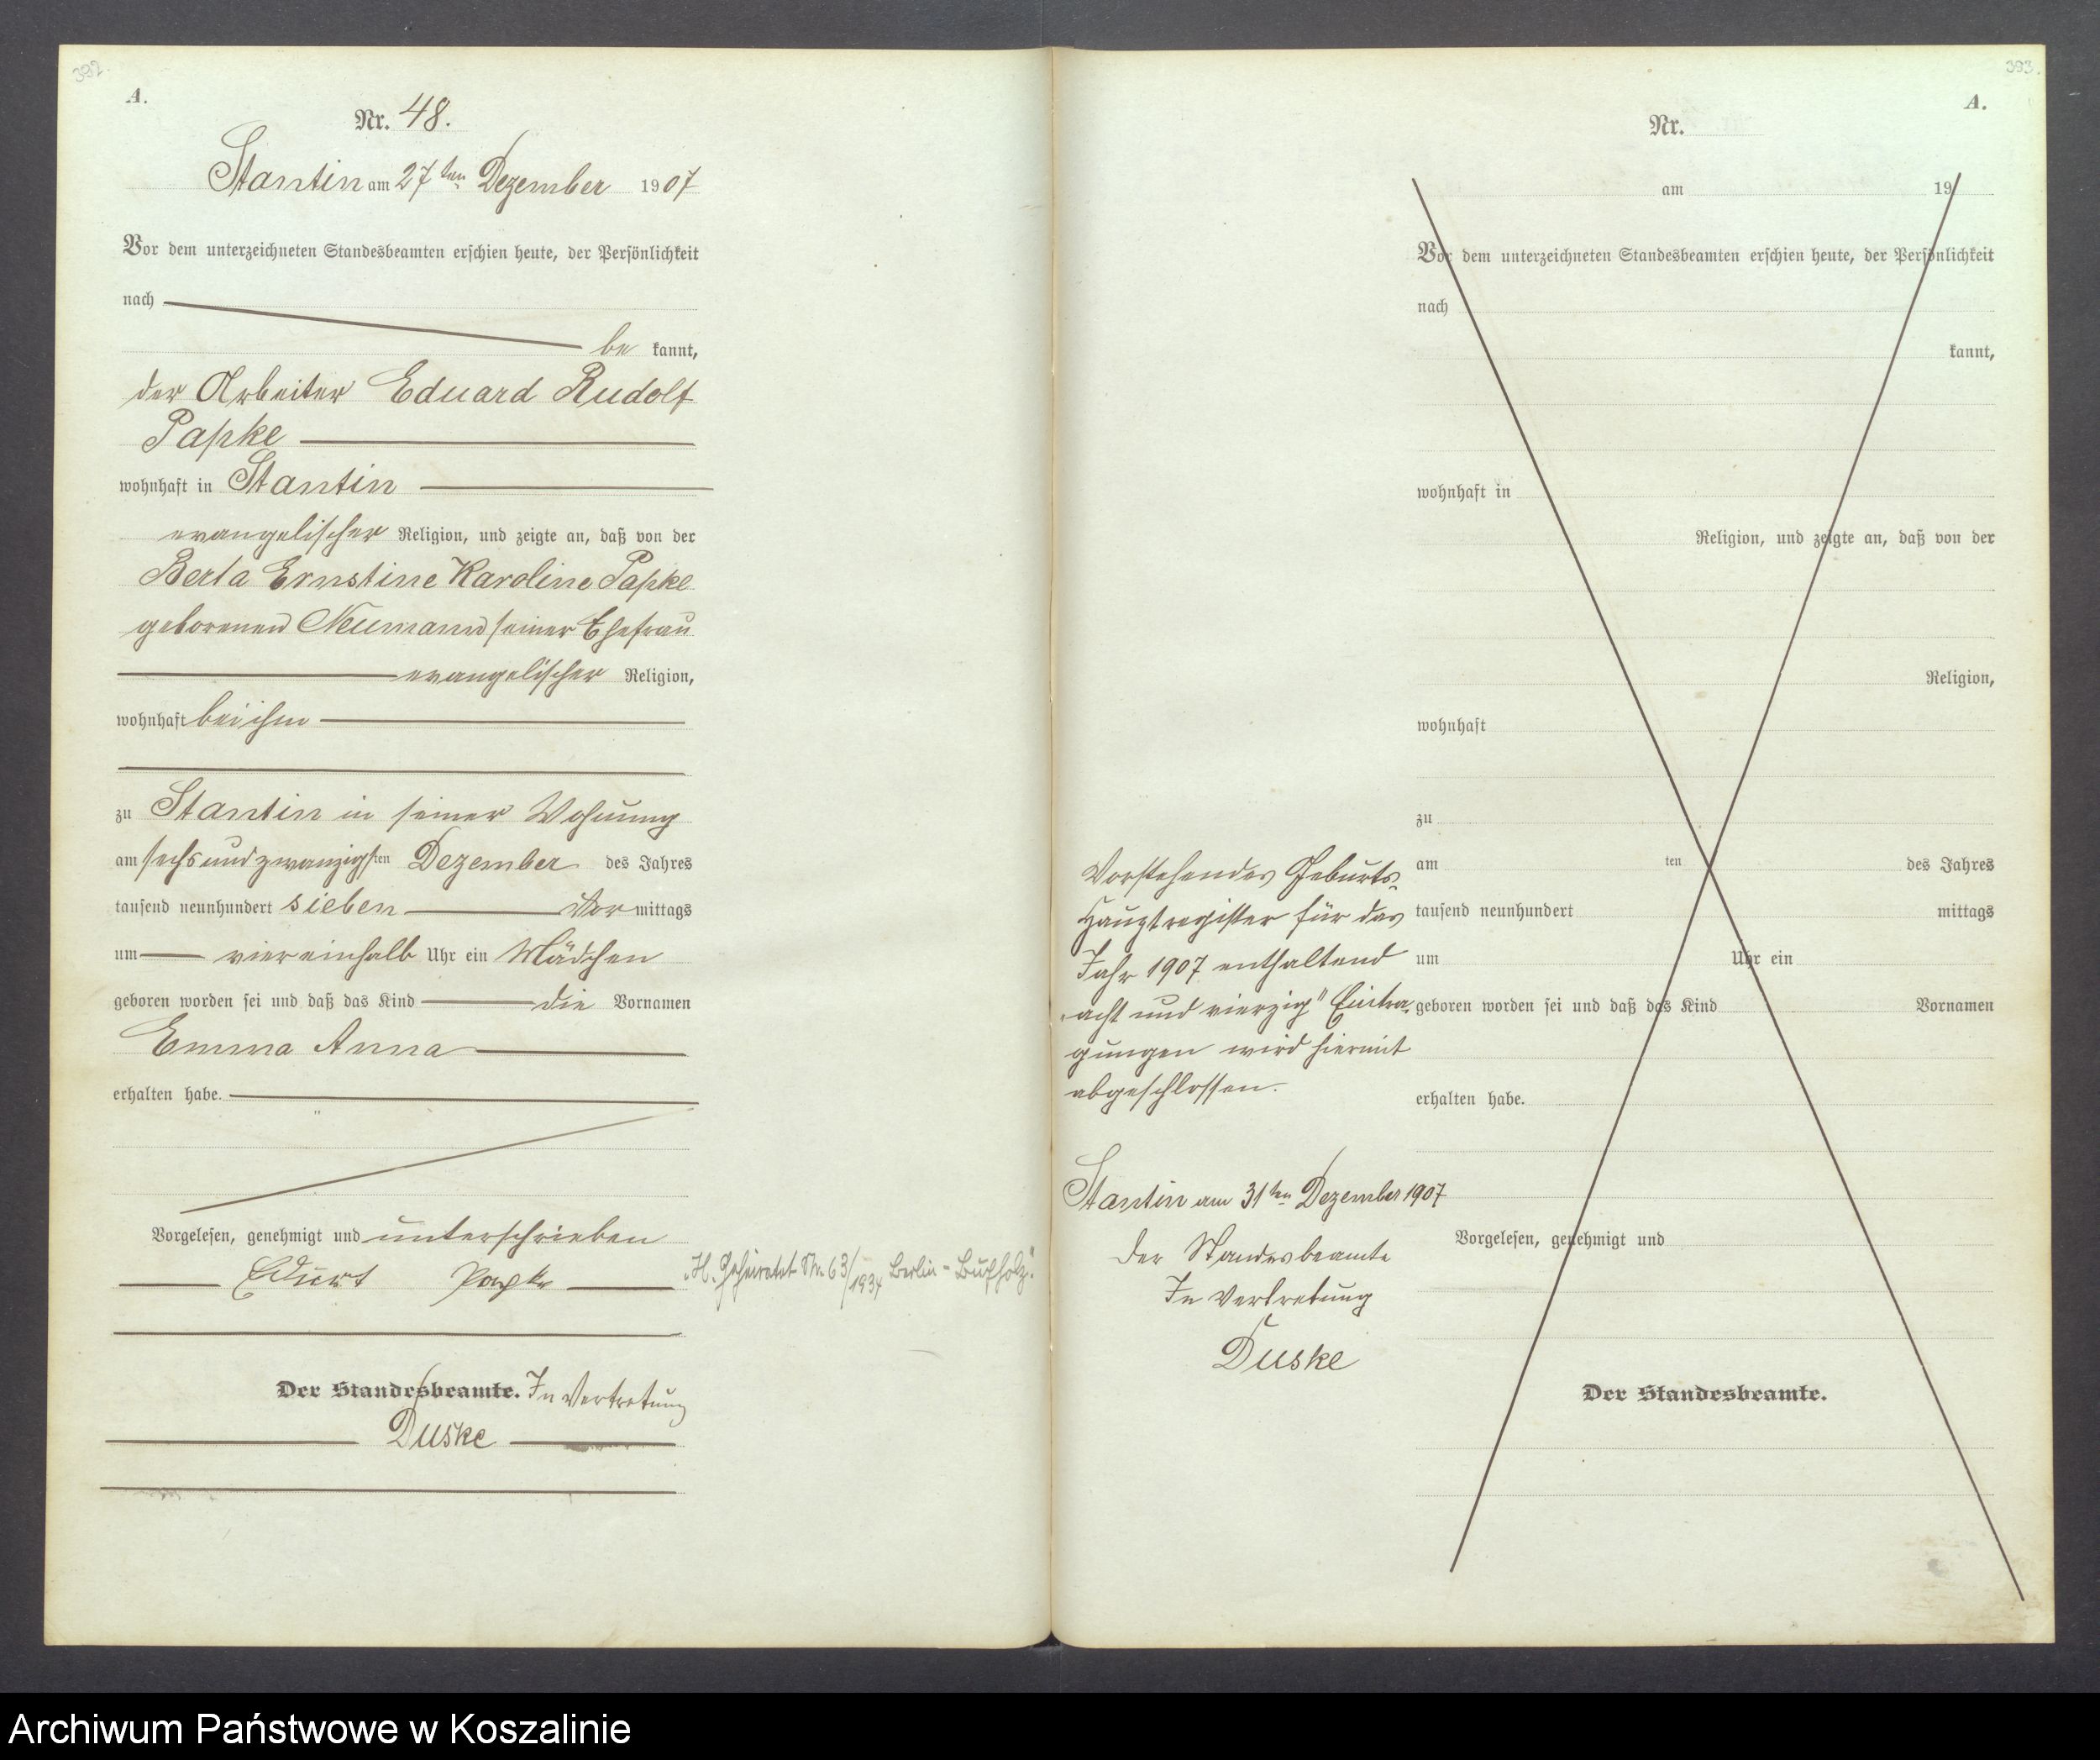 392.
A.
Nr. 48.
Stantin am 27ten Dezember 1907
Vor dem unterzeichneten Standesbeamten erschien heute, der Persönlichkeit
nach
be kannt,
der Arbeiter Eduard Rudolf
Papke
wohnhaft in Stantin
evangelischer Religion, und zeigte an, daß von der
Berta Ernstine Karoline Papke
geborenen Neumann seiner Ehefrau
evangelischer Religion,
wohnhaft bei ihm
zu Stantin in seiner Wohnung
am sechsundzwanzigsten Dezember des Jahres
tausend neunhundert sieben Vor mittags
um viereinhalb Uhr ein Mädchen
geboren worden sei und daß das Kind die Vornamen
Emma Anna
erhalten habe.
Vorgelesen, genehmigt und unterschrieben
Eduart Papke
"H. Geheiratet Nr. 63/1937 Berlin - Buchholz."
Der Standesbeamte. In Vertretung
Duske
393.
A.
Nr.
am 19
Vor dem unterzeichneten Standesbeamten erschien heute, der Persönlichkeit
nach
kannt,
wohnhaft in
Religion, und zeigte an, daß von der
Religion,
wohnhaft
zu
am ten des Jahres
tausend neunhundert mittags
um Uhr ein
geboren worden sei und daß das Kind Vornamen
erhalten habe.
Vorgelesen, genehmigt und
Der Standesbeamte.
Vorstehendes Geburts-
Hauptregister für das
Jahr 1907 enthaltend
"acht und vierzig" Eintra-
gungen wird hiermit
abgeschlossen.
Stantin am 31ten Dezember 1907
Der Standesbeamte
In Vertretung
Duske
Archiwum Państwowe w Koszalinie